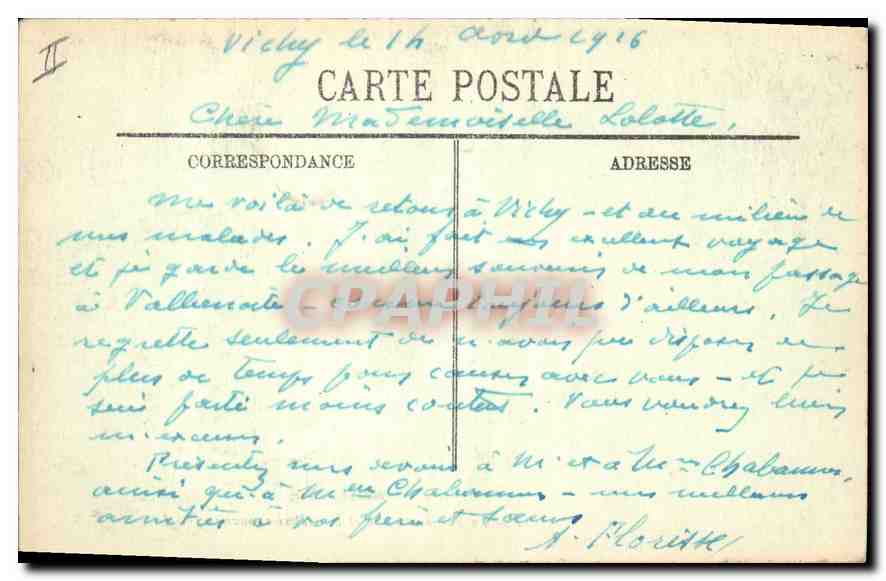 II
Vichy le 14 Aout 1916
CARTE POSTALE
Chère Mademoiselle Lolotte,
CORRESPONDANCE
ADRESSE
Me voilà de retour à Vichy - et au milieu de
mes malades. J'ai fait un excellent voyage
et je garde le meilleur souvenir de mon passage
à Valbenoite - comme toujours d'ailleurs. Je
regrette seulement de n'avoir pu disposer de
plus de temps pour causer avec vous - et je
suis parti moins content. Vous voudrez bien
m'excuser.
Présentez mes devoirs à Mr et à Mme Chabannes,
ainsi qu'à Mme Chabannes - mes meilleures
amitiés à vos frère et sœurs
A. Florisse
CPAPHIL